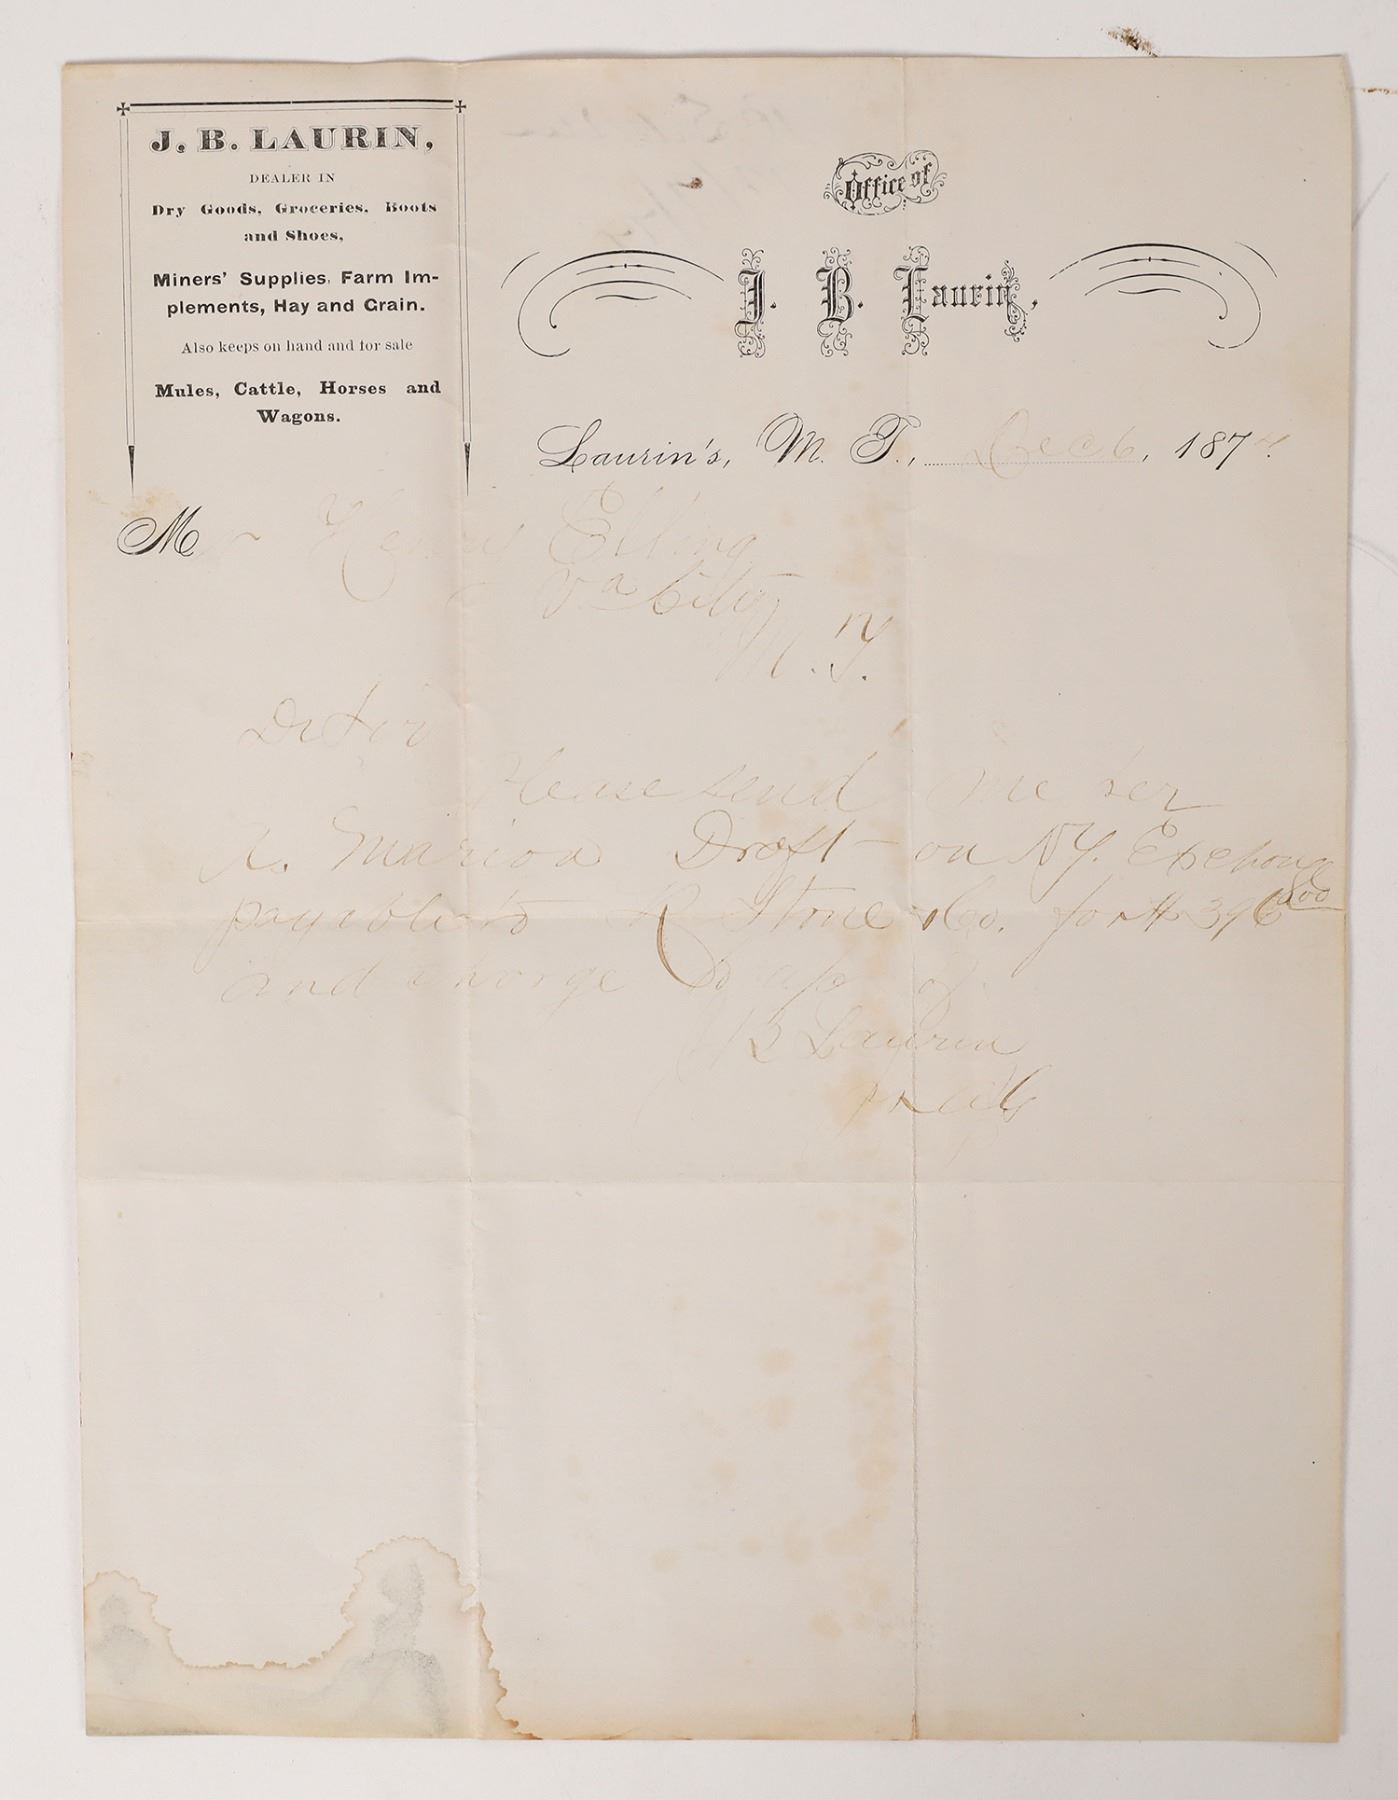 J. B. LAURIN,
DEALER IN
Dry Goods, Groceries, Boots
and Shoes,
Miners' Supplies, Farm Im-
plements, Hay and Grain.
Also keeps on hand and for sale
Mules, Cattle, Horses and
Wagons.
Office of
J. B. Laurin,
Laurin's, M. T., Dec 6, 187
Mr Henry Elling
Va City
M. T.
Dr Sir
Please send me per
A. Marion Draft on NY. Exchange
payable to R Stone & Co. for $ 396 00
and charge to a/c of
J B Laurin